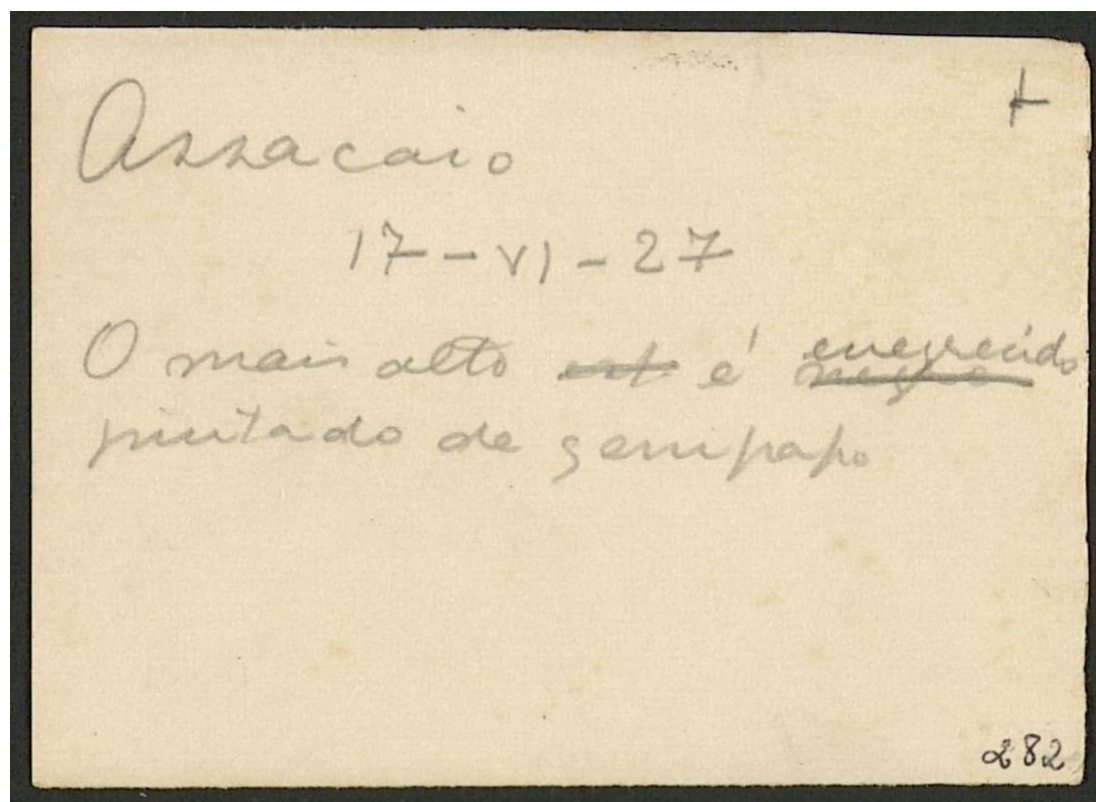 +
Assacaio
17-VI-27
O mais alto est é negro enegrecido
pintado de genipapo
282